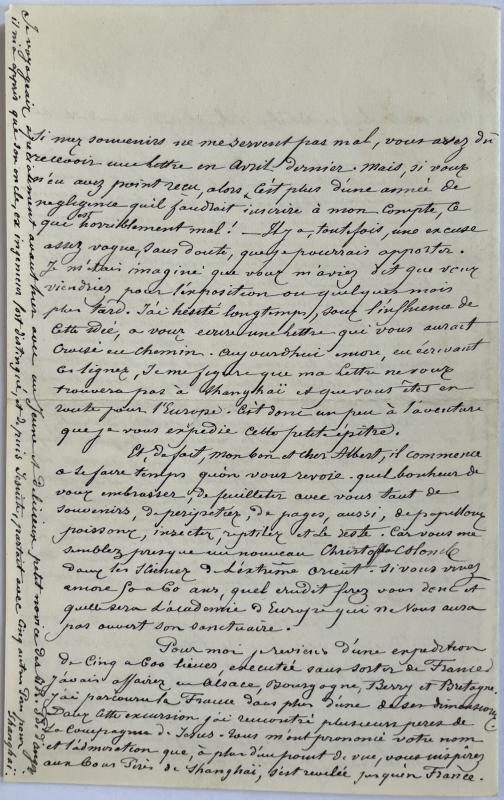 Si mes souvenirs ne me servent pas mal, vous avez dû
recevoir une lettre en Avril dernier. Mais, si vous
n'en avez point reçu, alors, c'est plus d'une année de
negligence qu'il faudrait inscrire à mon compte, ce
qui est horriblement mal! – Il y a, toutefois, une excuse
assez vague, sans doute, que je pourrais apporter.
Je m'étais imaginé que vous m'aviez dit que vous
viendriez pour l'exposition ou quelques mois
plus tard. J'ai hésité longtemps, sous l'influence de
cette idée, a vous ecrire une lettre qui vous aurait
croisé en chemin. Aujourd'hui encore, en écrivant
ces lignes, je me figure que ma lettre ne vous
trouvera pas à Shanghaï et que vous êtes en
route pour l'Europe. C'est donc un peu à l'aventure
que je vous expédie cette petite épitre.
Et, de fait, mon bon et cher Albert, il commence
a se faire temps qu'on vous revoie. quel bonheur de
vous embrasser, de feuilleter avec vous tant de
souvenirs, de peripéties, de pages, aussi, de papillons
poissons, insectes, reptiles et le reste. Car vous me
semblez presque un nouveau Christoffe Colomb
dans les sciences de l'extrême orient. Si vous vivez
encore 50 a 60 ans, quel erudit serez vous donc et
quelle sera l'academie d'Europe qui ne vous aura
pas ouvert son sanctuaire.
Pour moi je reviens d'une expédition
de cinq a 600 lieues, executée sans sortir de France
j'avais affaires en Alsace, Bourgogne, Berry et Bretagne
j'ai parcouru la France dans plus d'une de ses dimensions.
Dans cette excursion j'ai rencontré plusieurs peres de
la Compagnie de Jesus. Tous m'ont prononcé votre nom
et l'admiration que, à plus d'un point de vue, vous inspirez
aux bons Pères de Shanghaï, s'est revelée jusqu'en France.
Je voyageais précisément avant hier avec un jeune et délicieux petit novice des R.P. d'Angers
il m'a appris que son oncle, ex ingenieur fort distingué, et depuis Jésuite, partait avec cinq autres Pères pour
Shanghai.